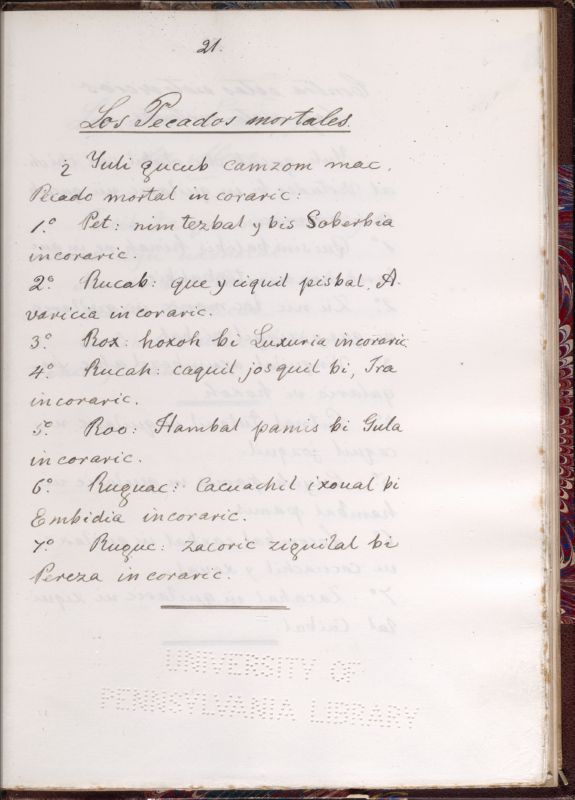 21.
Los Pecados mortales.
Yuli gucub camzom mac.
Pecado mortal incoraric:
1.º Pet: nim tezbal y bis Soberbia
incoraric.
2º Rucab: que y ciquil pisbal, A
varicia incoraric.
3º Rox: hoxoh bi Luxuria incoraric
4º Rucah: caquil josquil bi, Ira
incoraric.
5º Roo: Hambal pamis bi Gula
incoraric.
6º Ruguac: Cacuachil ixoual bi
Embidia incoraric.
7º Ruguc: zacoric ziguilal bi
Pereza incoraric.
UNIVERSITY OF
PENNSYLVANIA LIBRARY